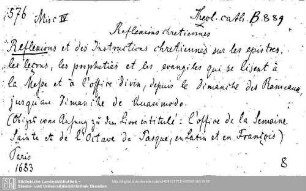 576 Misc IV Theol. cath. B. 889
Reflexions chretiennes
Reflexions et des Instructions chretiennes sur les epistres,
les leçons, les propheties et les evangiles qui se lisent à
la Messe et à l'office divin, depuis le dimanche des Rameaux,
jusqu'au dimanche de Quasimodo.
(Obige von zu den Livre intitulé: L'office de la Semaine
Sainte et de l'Octave de Pasque, en Latin et en François)
Paris
1683 8